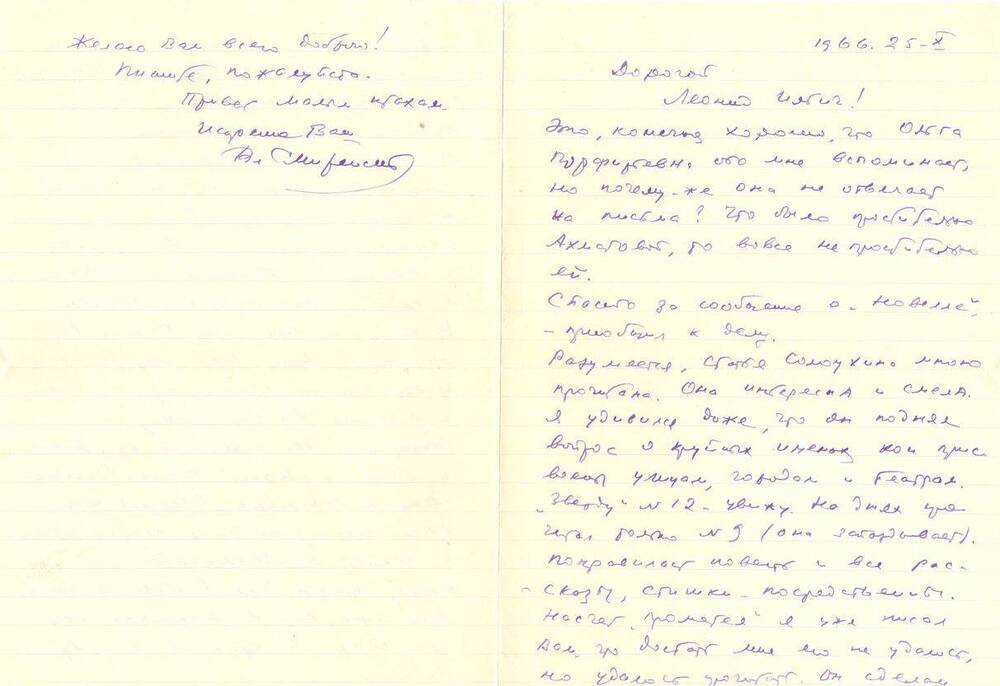 1966. 25-X
Дорогой
Леонид Ильич!
Это, конечно хорошо, что Ольга
Порфирьевна обо мне вспоминает,
но почему-же она не отвечает
на письма? Что было простительно
Ахматовой, то вовсе не простительно
ей.
Спасибо за сообщение о „Новелле",
- приобщил к делу.
Разумеется, статья Солоухина мною
прочитана. Она интересна и смела.
Я удивился даже, что он поднял
вопрос о крупных именах кои прис
воены улицам, городам и театрам.
„Звезду" № 12 - увижу. На днях про
читал только № 9 (она запаздывает).
Понравилась повесть и все рас-
сказы, стишки - посредственны.
Насчет „Прометея" я уже писал
Вам, что достать мне его не удалось,
но удалось прочитать. Он сделан
Желаю Вам всего доброго!
Пишите, пожалуйста.
Привет малым птахам.
Искренно Ваш
Вл Смиренский